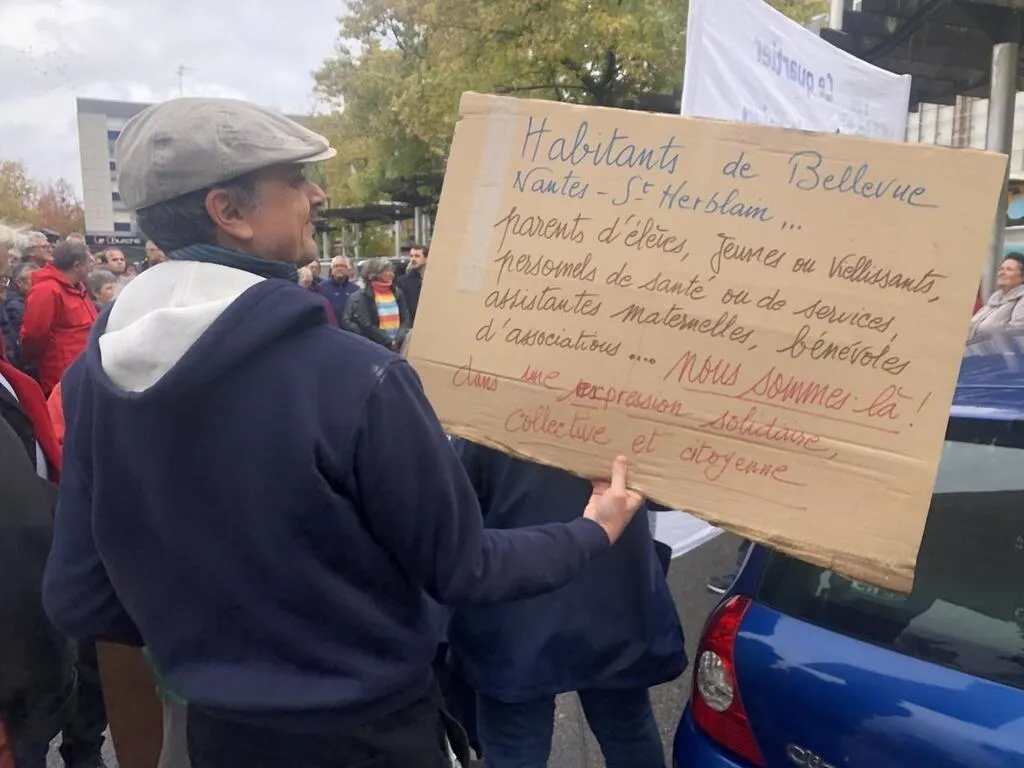 Le quartier
Habitants de Bellevue
Nantes - St Herblain...
parents d'élèves, jeunes ou vieillissants,
personnels de santé ou de services,
assistantes maternelles, bénévoles
d'associations .... nous sommes là !
dans une expression solidaire,
collective et citoyenne